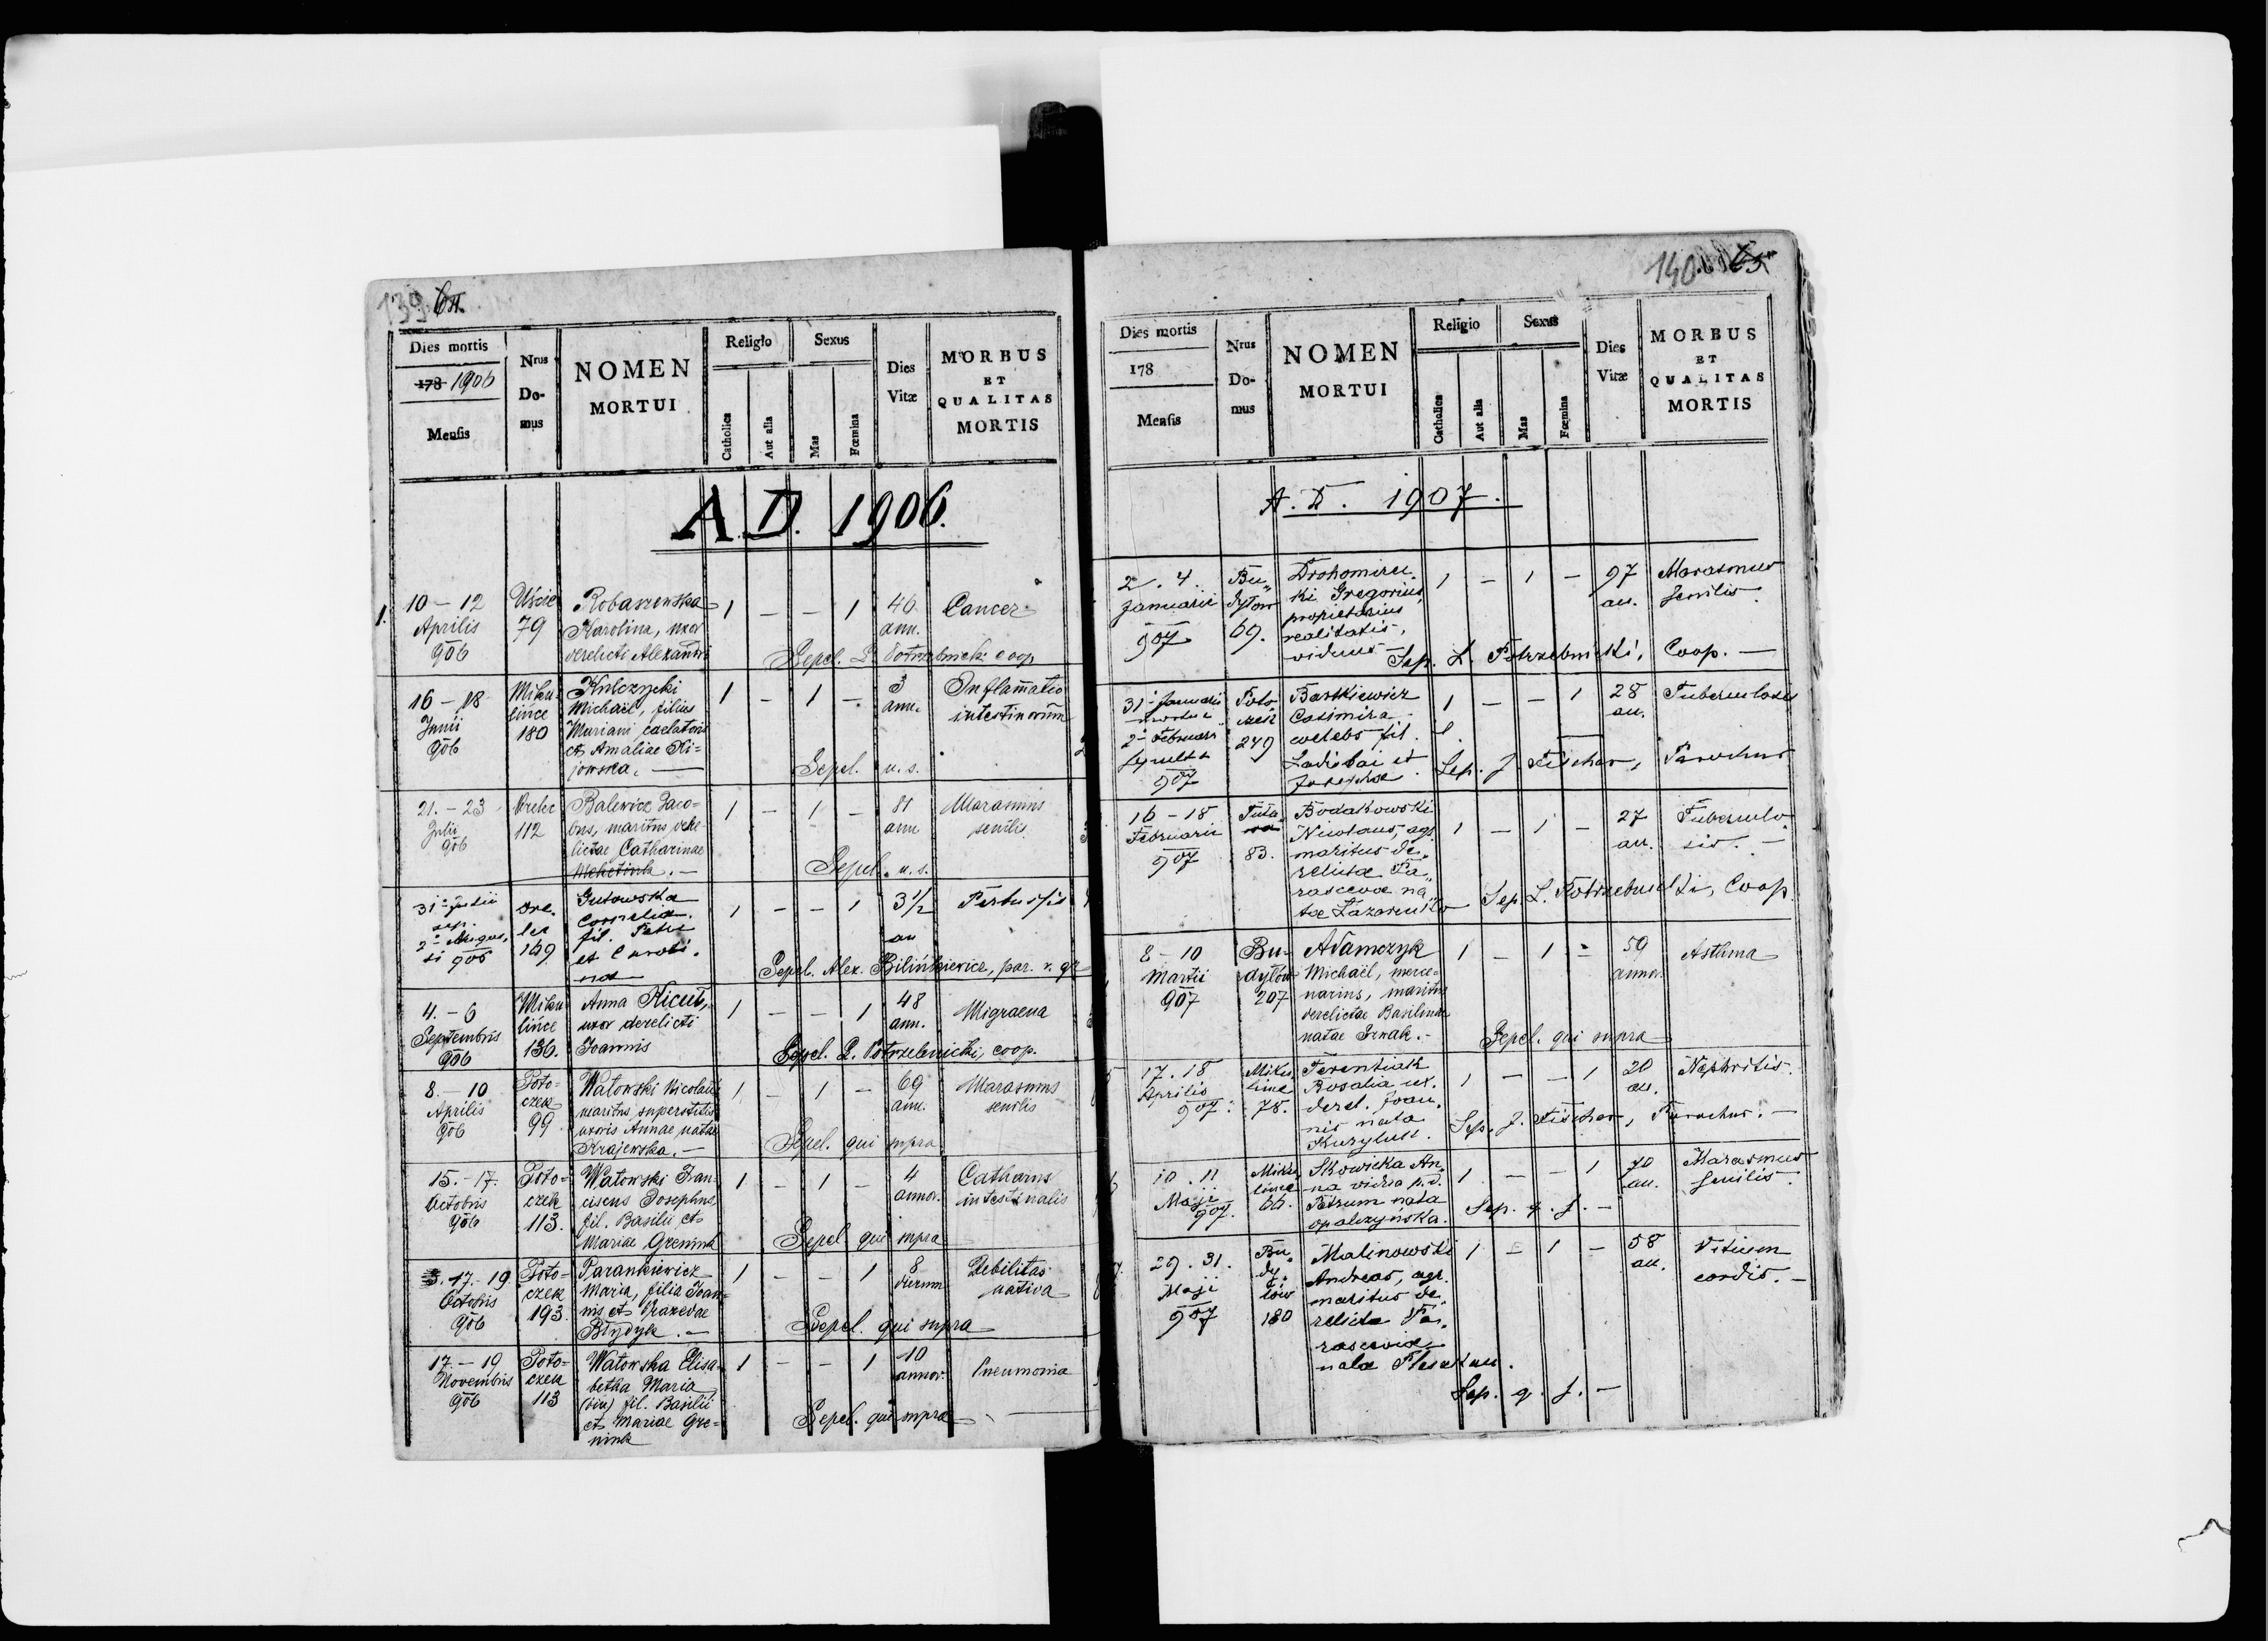 139
Dies mortis
178 1906
Mensis
Nrus
Do-
mus
NOMEN
MORTUI
Religio
Catholica
Aut alia
Sexus
Mas
Fœmina
Dies
Vitæ
MORBUS
ET
QUALITAS
MORTIS
A. D. 1906.
1.
10 – 12
Aprilis
906
Uście
79
Robaszewska
Karolina, uxor
derelicti Alexandri
1 – – 1
46
ann.
Cancer
Sepel. L. Potrzebnicki coop
16 – 18
Junii
906
Miku
lińce
180
Kulczycki
Michaël, filius
Mariani, caelatoris
et Amaliae Ki=
jowska. –
1 – 1 –
3
ann.
Inflam̄atio
intestinorum
Sepel. u. s.
21. – 23
Julii
906
112
Balewicz Jaco=
bus, maritus dere
lictae Catharinae
1 – 1 –
81
ann
Marasmus
senilis
Sepel. u. s.
31 Julii
sep.
2 Augus,
ti 906
Ore.
lec
169
Gutowska
Cornelia
fil. Petri
et Caroli.
na
1 – – 1
3½
an
Pertussis
Sepel. Alex. Bilińkiewicz, par. r. gr
4. – 6
Septembris
906
Miku
lińce
136.
Anna Kicuł,
uxor derelicti
Joannis
1 – – 1
48
ann.
Migraena
Sepel. L. Potrzebnicki, coop.
8. 10
Aprilis
906
Poto=
czek
99
Watowski Nicolaus
maritus superstitis
uxoris Annae natae
Krajewska. –
1 – 1 –
69
ann.
Marasmus
senilis
Sepel. qui supra
15. – 17.
Octobris
906
Poto=
czek
113.
Watowski Fran
ciscus Josephus,
fil. Basilii et
Mariae Greniuk
1 – 1 –
4
annor.
Catharus
intestinalis
Sepel qui supra
17. – 19.
Octobris
906
Poto=
czek
193.
Parankiewicz
Maria, filia Joan=
nis et Praxedae
Błydyk. –
1 – – 1
8
dierum
Debilitas
nativa
Sepel. qui supra
17. – 19
Novembris
906
Poto=
czek
113
Watowska Elisa=
betha Maria
(bin) fil. Basilii
et Mariae Gre=
niuk
1 – – 1
10
annor.
Pneumonia
Sepel. qui supra
140
65
Dies mortis
178
Mensis
Nrus
Do-
mus
NOMEN
MORTUI
Religio
Catholica
Aut alia
Sexus
Mas
Fœmina
Dies
Vitæ
MORBUS
ET
QUALITAS
MORTIS
A. D. 1907.
2. 4.
Januarii
907
Bu„
dyłow
69.
Drohomirec
ki Gregorius
proprietarius
realitatis,
viduus –
1 – 1 –
97
an.
Marasmus
senilis
Sep. L. Potrzebnicki, Coop. –
31 Januarii
mortua
2 Februari
sepulta
907
Poto
czek
249
Bartkiewicz
Casimira
coelebs fil.
Ladislai et
Josephae
1 – – 1
28
an.
Tuberculosis
Sep. J. Fischer, Parochus
16 – 18
Februarii
907
83.
Bodakowski
Nicolaus, agr.
maritus de„
relictae Pa„
rascevae na
tae Łazareniło
1 – 1 –
27
an.
Tuberculo
sis. –
Sep. L. Potrzebnicki, Coop.
8 – 10
Martii
907
Bu-
dyłow
207
Adamczyk
Michaël, merce=
narius, maritus
derelictae Basilinae
natae Szwak. –
1 – 1 –
59
annor.
Asthma
Sepel. qui supra
17. 18
Aprilis
907.
Miku
lince
78.
Terentiak
Rosalia ux.
derel. Joan,
nis nata
Kuryluk.
1 – – 1
20
an.
Nephritis.
Sep. J. Fischer, Parochus. –
10. 11
Maji
907.
Miku
lince
66.
Skowicka An„
na vidua p. d.
Petrum nata
Opałczyńska.
1 – – 1
70
an.
Marasmus
senilis.
Sep. q. s. –
29. 31.
Maji
907
Bu„
dy„
łow
180
Malinowski
Andreas, agr.
maritus de„
relicta Pa„
rascevia
nata Flesekau.
1 – 1 –
58
an.
Vitium
cordis. –
Sep. q. s. –